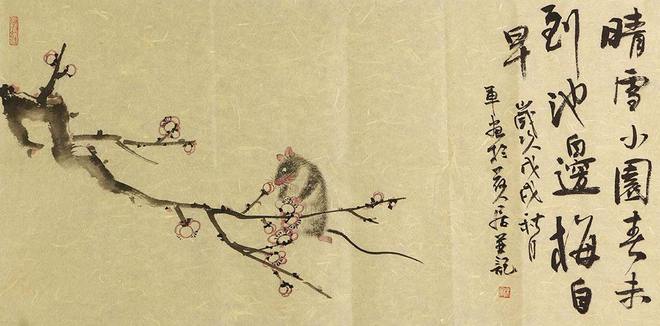 晴雪小園春未
到池邊梅自
早
歲次戊戌秋月
軍畫於居並記